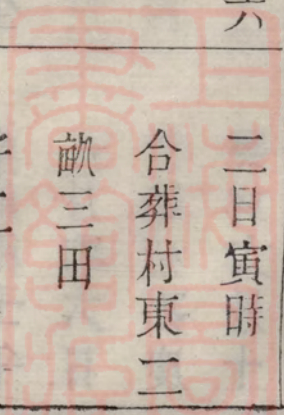 二日寅時
合葬村東二
畝三田